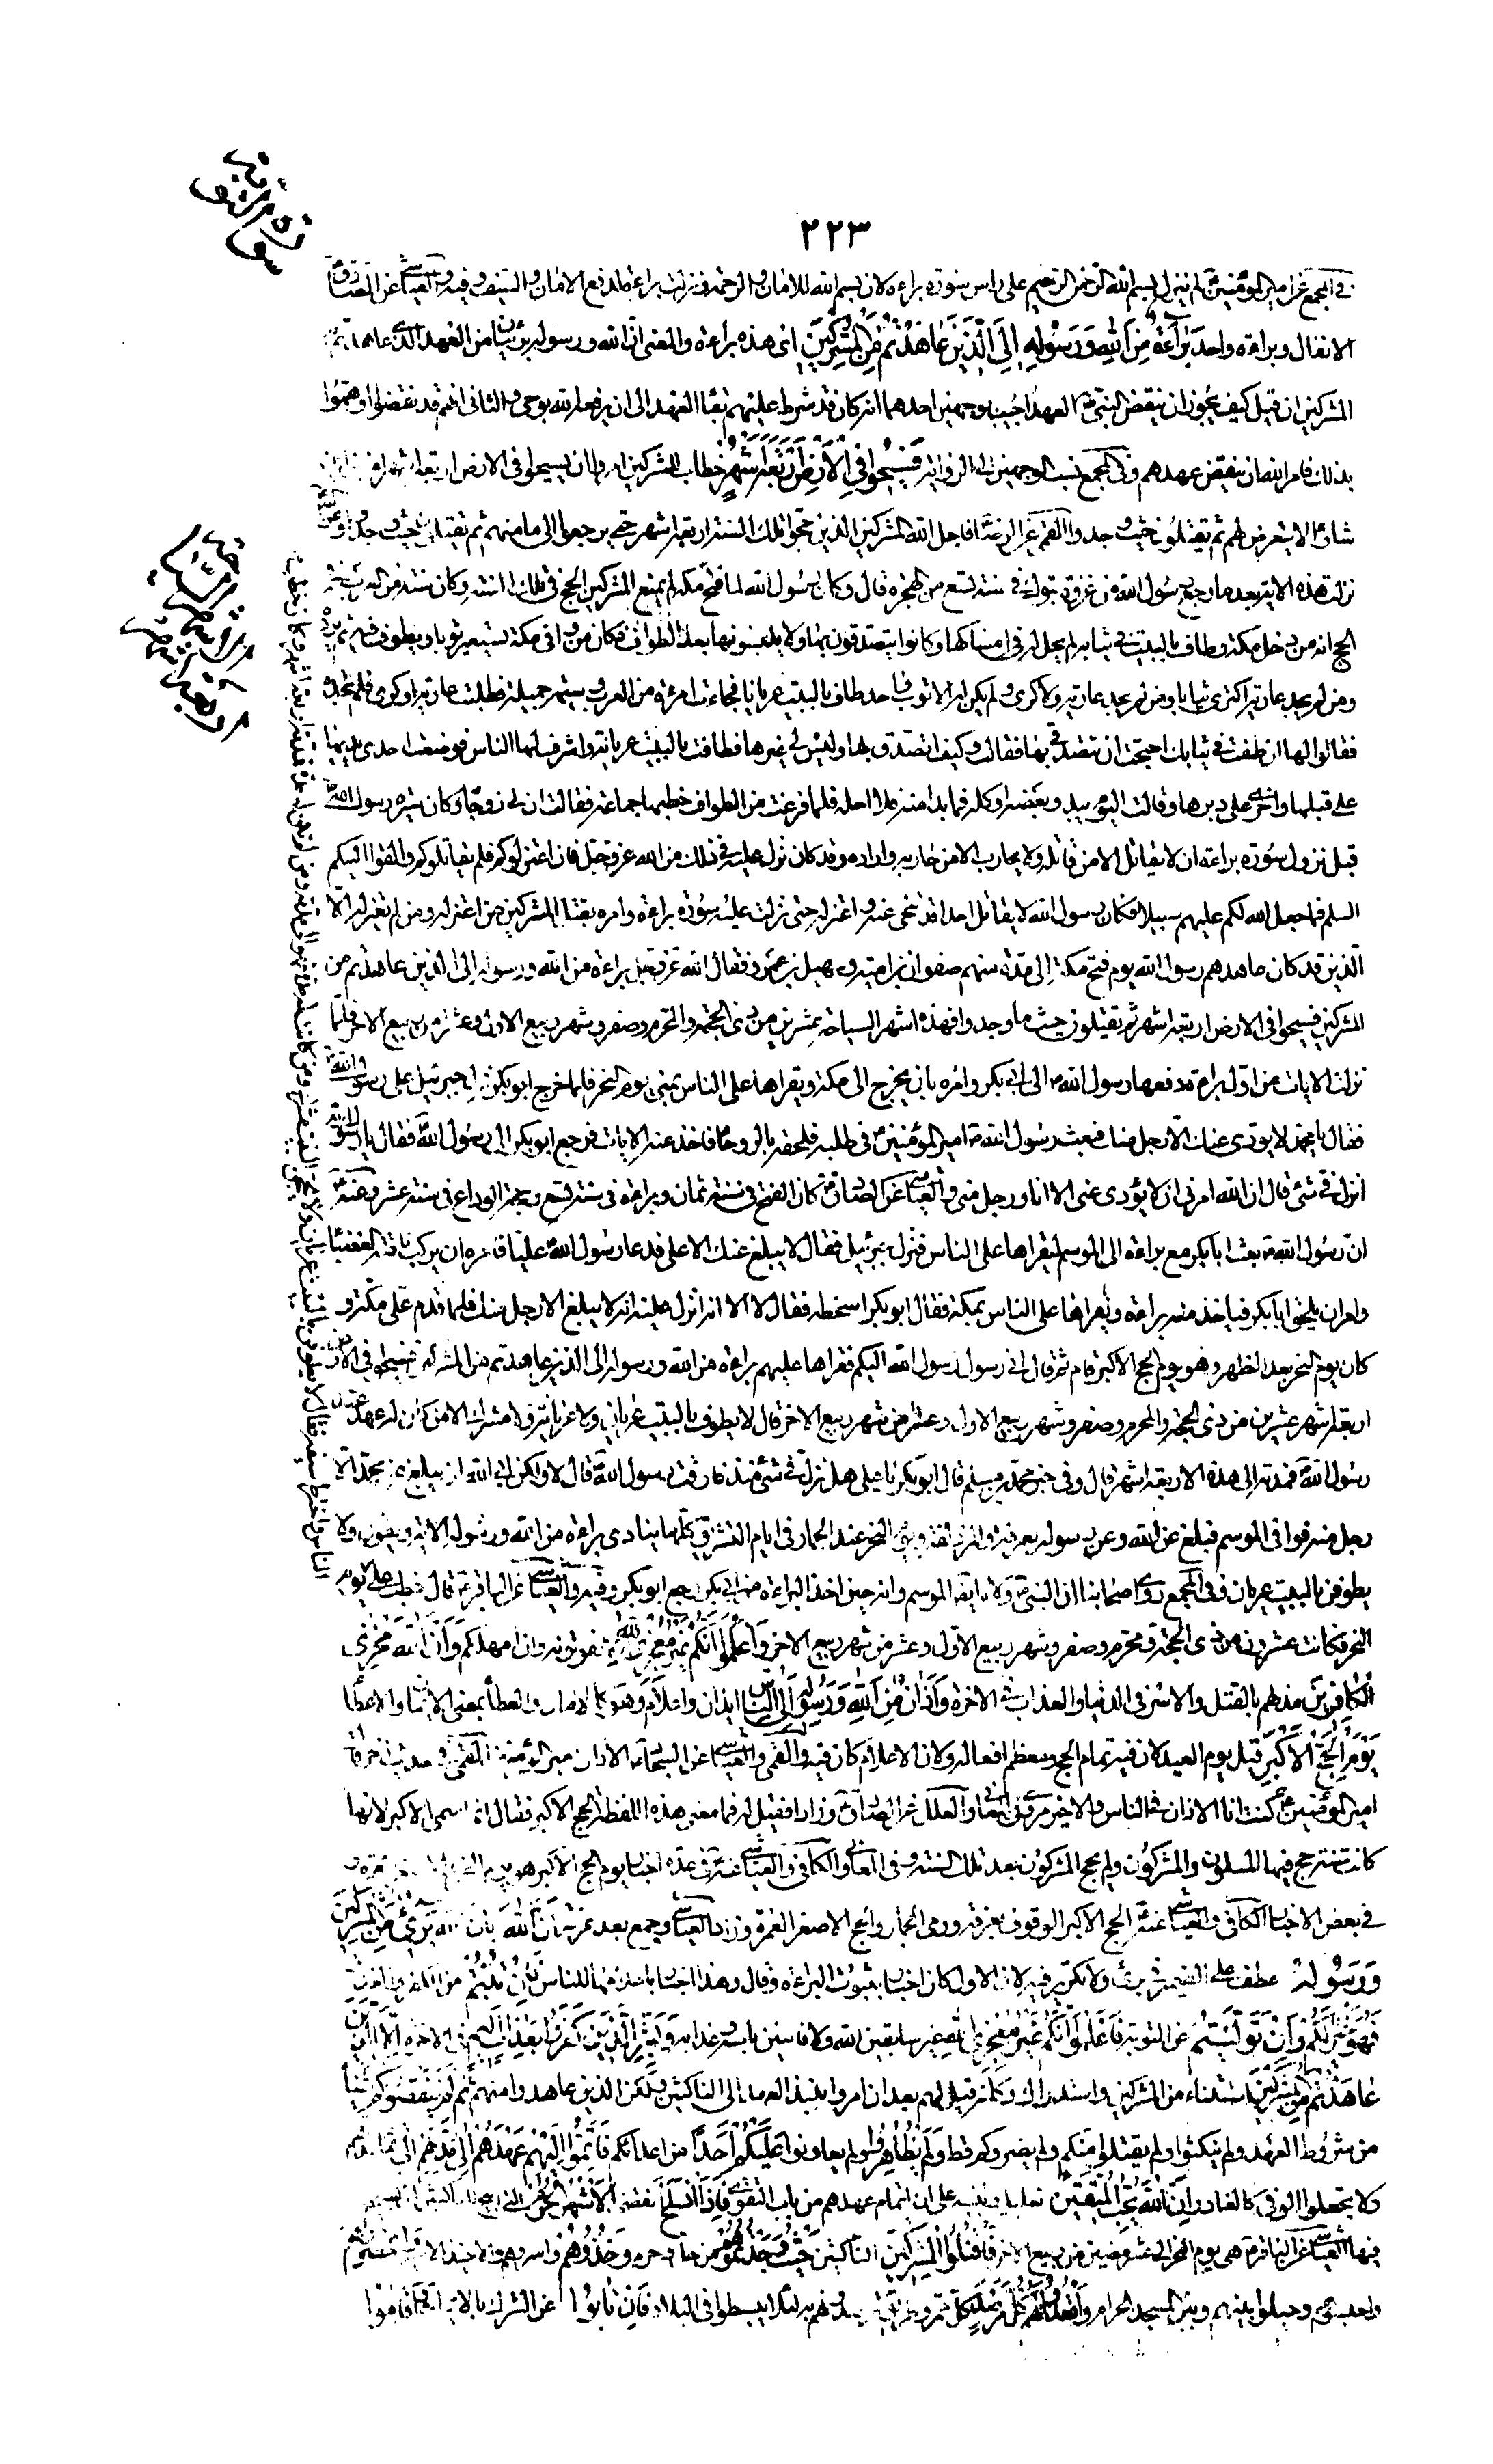 ٢٢٣
في المجمع عن امير المؤمنين لم ينزل بسم الله الرحمن الرحيم على راس سورة براءة لان بسم الله للامان والرحمة ونزلت براءة لدفع الامان والسيف فيه والعياشي عن الصادق
الانفال وبراءة واحد بَرَاءَةٌ مِنَ اللهِ وَرَسُولِهِ إِلَى الَّذِينَ عَاهَدْتُمْ مِنَ الْمُشْرِكِينَ اى هذه براءة والمعنى ان الله ورسوله بريئان من العهد الذى عاهدتم به
المشركين ان قيل كيف يجوز ان ينقض النبى العهد اجيب بوجهين احدهما انه كان قد شرط عليهم بقاء العهد الى ان يرفعه الله بوحى والثانى انهم قد نقضوا او هموا
بذلك فامر الله ان ينقض عهدهم وفى المجمع نسب الوجهين الى الرواية فَسِيحُوا فِي الْأَرْضِ أَرْبَعَةَ أَشْهُرٍ خطاب للمشركين امروا ان يسيحوا فى الارض اربعة اشهر
شاؤا لا يتعرض لهم ثم يقتلون حيث وجدوا القمى عن الرضا فاجل الله المشركين الذين حجوا تلك السنة اربعة اشهر حتى يرجعوا الى مامنهم ثم يقتلون حيث وجدوا وعن
نزلت هذه الاية بعد ما رجع رسول الله من غزوة تبوك فى سنة تسع من الهجرة قال وكان رسول الله لما فتح مكة لم يمنع المشركين الحج فى تلك السنة وكان سنة من العرب فى
الحج انه من دخل مكة وطاف بالبيت فى ثيابه لم يحل له امساكها وكانوا يتصدقون بها ولا يلبسونها بعد الطواف فكان من وافى مكة يستعير ثوبا ويطوف فيه ثم يرده
ومن لم يجد عارية اكترى ثيابا ومن لم يجد عارية ولا كرى ولم يكن له الا ثوب واحد طاف بالبيت عريانا فجاءت امرئة من العرب وسيمة جميلة فطلبت عارية او كرى فلم تجده
فقالوا لها ان طفت فى ثيابك احتجت ان تتصدقى بها فقالت وكيف اتصدق بها وليس لى غيرها فطافت بالبيت عريانة واشرف لها الناس فوضعت احدى يديها
على قبلها والاخرى على دبرها وقالت اليوم يبدو بعضه او كله فما بدا منه فلا احله فلما فرغت من الطواف خطبها جماعة فقالت ان لى زوجا وكان سيرة رسول الله
قبل نزول سورة براءة ان لا يقاتل الا من قاتله ولا يحارب الا من حاربه واراده وقد كان نزل عليه فى ذلك من الله عز وجل فان اعتزلوكم فلم يقاتلوكم والقوا اليكم
السلم فما جعل الله لكم عليهم سبيلا فكان رسول الله لا يقاتل احدا قد تنحى عنه واعتزله حتى نزلت عليه سورة براءة وامره بقتل المشركين من اعتزله ومن لم يعتزله الا
الذين قد كان عاهدهم رسول الله يوم فتح مكة الى مدة منهم صفوان بن امية وسهيل بن عمرو فقال الله عز وجل براءة من الله ورسوله الى الذين عاهدتم من
المشركين فسيحوا فى الارض اربعة اشهر ثم يقتلون حيث ما وجدوا فهذه اشهر السياحة عشرين من ذى الحجة والمحرم وصفر وشهر ربيع الاول وعشرة من ربيع الاخر فلما
نزلت الايات من اول براءة دفعها رسول الله الى ابى بكر وامره بان يخرج الى مكة ويقراها على الناس بمنى يوم النحر فلما خرج ابو بكر نزل جبرئيل على رسول الله
فقال يا محمد لا يؤدى عنك الا رجل منك فبعث رسول الله امير المؤمنين فى طلبه فلحقه بالروحا فاخذ منه الايات فرجع ابو بكر الى رسول الله فقال يا رسول الله
انزل فى شئ قال ان الله امرنى ان لا يؤدى عنى الا انا او رجل منى والعياشى عن الصادق كان الفتح فى سنة ثمان وبراءة فى سنة تسع وحجة الوداع فى سنة عشر وعنه
ان رسول الله بعث ابا بكر مع براءة الى الموسم ليقراها على الناس فنزل جبرئيل فقال لا يبلغ عنك الا على فدعا رسول الله عليا فامره ان يركب ناقته العضباء
وامره ان يلحق ابا بكر فياخذ منه براءة ويقراها على الناس بمكة فقال ابو بكر اسخطة فقال لا الا انه انزل عليه انه لا يبلغ الا رجل منك فلما قدم على مكة و
كان يوم النحر بعد الظهر وهو يوم الحج الاكبر قام ثم قال انى رسول رسول الله اليكم فقراها عليهم براءة من الله ورسوله الى الذين عاهدتم من المشركين فسيحوا فى الارض
اربعة اشهر عشرين من ذى الحجة والمحرم وصفر وشهر ربيع الاول وعشرا من شهر ربيع الاخر قال لا يطوف بالبيت عريان ولا عريانة ولا مشرك الا من كان له عهد عند
رسول الله فمدته الى هذه الاربعة اشهر قال وفى خبر محمد بن مسلم قال ابو بكر يا على هل نزل فى شئ منذ فارقت رسول الله قال لا ولكن ابى الله ان يبلغ عن محمد الا
رجل منه فوافى الموسم فبلغ عن الله وعن رسوله بعرفة والمزدلفة ويوم النحر عند الجمار وفى ايام التشريق كلها ينادى براءة من الله ورسوله الاية ويقول ولا
يطوفن بالبيت عريان وفى المجمع روى اصحابنا ان النبى ولاه ايضا الموسم وانه حين اخذ البراءة من ابى بكر رجع ابو بكر وفيه والعياشى عن الباقر قال خطب على يوم
النحر فكانت عشرون من ذى الحجة ومحرم وصفر وشهر ربيع الاول وعشر من شهر ربيع الاخر وَاعْلَمُوا أَنَّكُمْ غَيْرُ مُعْجِزِي اللهِ لا تفوتونه وان امهلكم وَأَنَّ اللهَ مُخْزِي
الْكَافِرِينَ مذلهم بالقتل والاسر فى الدنيا والعذاب فى الاخرة وَأَذَانٌ مِنَ اللهِ وَرَسُولِهِ إِلَى النَّاسِ ايذان واعلام وهو كالامان والعطاء بمعنى الايمان والاعطاء
يَوْمَ الْحَجِّ الْأَكْبَرِ قيل يوم العيد لان فيه تمام الحج ومعظم افعاله ولان الاعلام كان فيه والقمى والعياشى عن السجاد الاذان امير المؤمنين القمى وفى حديث اخر قال
امير المؤمنين كنت انا الاذان فى الناس والاخير مروى فى المعانى والعلل عن الصادق وزادا فقيل له فما معنى هذه اللفظة الحج الاكبر فقال انما سمى الاكبر لانها
كانت سنة حج فيها المسلمون والمشركون ولم يحج المشركون بعد تلك السنة وفى المعانى والكافى والعياشى عنه فى عدة اخبار يوم الحج الاكبر هو يوم النحر
فى بعض الاخبار الكافى والعياشى عنه الحج الاكبر الوقوف بعرفة ورمى الجمار والحج الاصغر العمرة وزاد العياشى وجمع بعد عرفة أَنَّ اللهَ بان الله بَرِيءٌ مِنَ الْمُشْرِكِينَ
وَرَسُولُهُ عطف على الضمير فى برئ ولا تكرير فيه لان الاول كان اخبارا بثبوت البراءة وقال وهذا اخبار باعلامها للناس فَإِنْ تُبْتُمْ من الكفر والغدر
فَهُوَ خَيْرٌ لَكُمْ وَإِنْ تَوَلَّيْتُمْ عن التوبة فَاعْلَمُوا أَنَّكُمْ غَيْرُ مُعْجِزِي اللهِ غير سابقين الله ولا فائتين باسه وعذابه وَبَشِّرِ الَّذِينَ كَفَرُوا بِعَذَابٍ أَلِيمٍ فى الاخرة إِلَّا الَّذِينَ
عَاهَدْتُمْ مِنَ الْمُشْرِكِينَ استثناء من المشركين واستدراك وكانه قيل لهم بعد ان امروا بنبذ العهد الى الناكثين ولكن الذين عاهدوا منهم ثُمَّ لَمْ يَنْقُصُوكُمْ شَيْئًا
من شروط العهد ولم ينكثوا ولم يقتلوا منكم ولم يضروكم قط وَلَمْ يُظَاهِرُوا ولم يعاونوا عَلَيْكُمْ أَحَدًا من اعدائكم فَأَتِمُّوا إِلَيْهِمْ عَهْدَهُمْ إِلَى مُدَّتِهِمْ الى تمام مدتهم
ولا تجعلوا الوفى كالغادر إِنَّ اللهَ يُحِبُّ الْمُتَّقِينَ تعليل وتنبيه على ان اتمام عهدهم من باب التقوى فَإِذَا انْسَلَخَ انقضى الْأَشْهُرُ الْحُرُمُ التى ابيح للناكثين ان يسيحوا
فيها العياشى عن الباقر هى يوم النحر الى عشر مضين من ربيع الاخر فَاقْتُلُوا الْمُشْرِكِينَ الناكثين حَيْثُ وَجَدْتُمُوهُمْ من حل وحرم وَخُذُوهُمْ واسروهم والاخيذ الاسير وَاحْصُرُوهُمْ
واحبسوهم وحيلوا بينهم وبين المسجد الحرام وَاقْعُدُوا لَهُمْ كُلَّ مَرْصَدٍ كل ممر وطريق ترصدونهم به لئلا يبسطوا فى البلاد فَإِنْ تَابُوا عن الشرك بالايمان وَأَقَامُوا